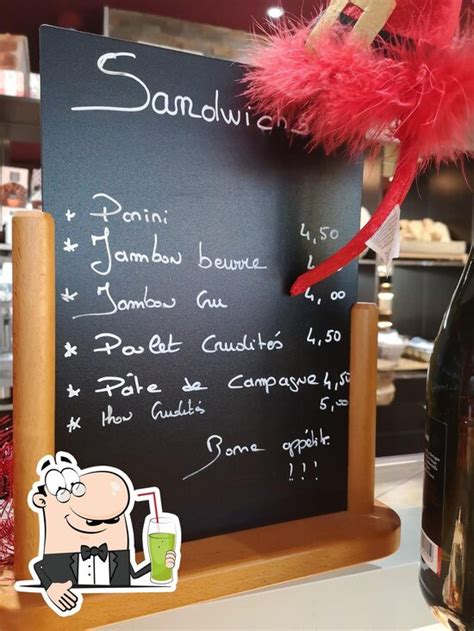 Sandwichs
* Panini 4,50
* Jambon beurre
* Jambon Cru 4,00
* Poulet Crudités 4,50
* Pâte de Campagne 4,50
* thon Crudités 5,00
Bonne appétit
!!!